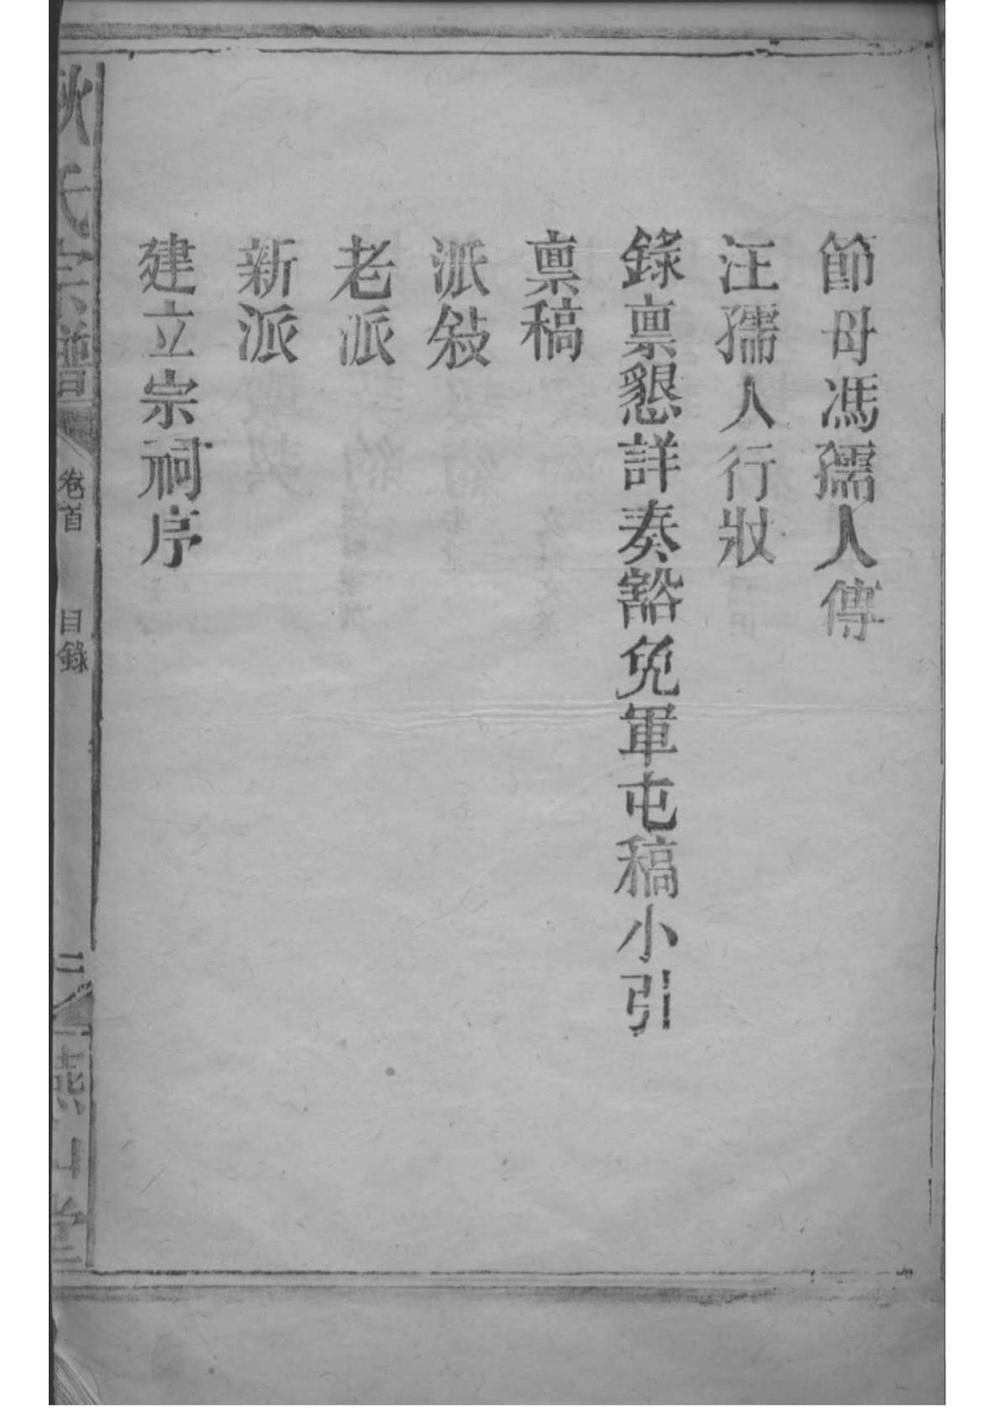 節母馮孺人傳
汪孺人行狀
錄稟懇詳奏豁免軍屯稿小引
稟稿
派敍
老派
新派
建立宗祠序
氏宗譜
卷首
目錄
二
燕山堂